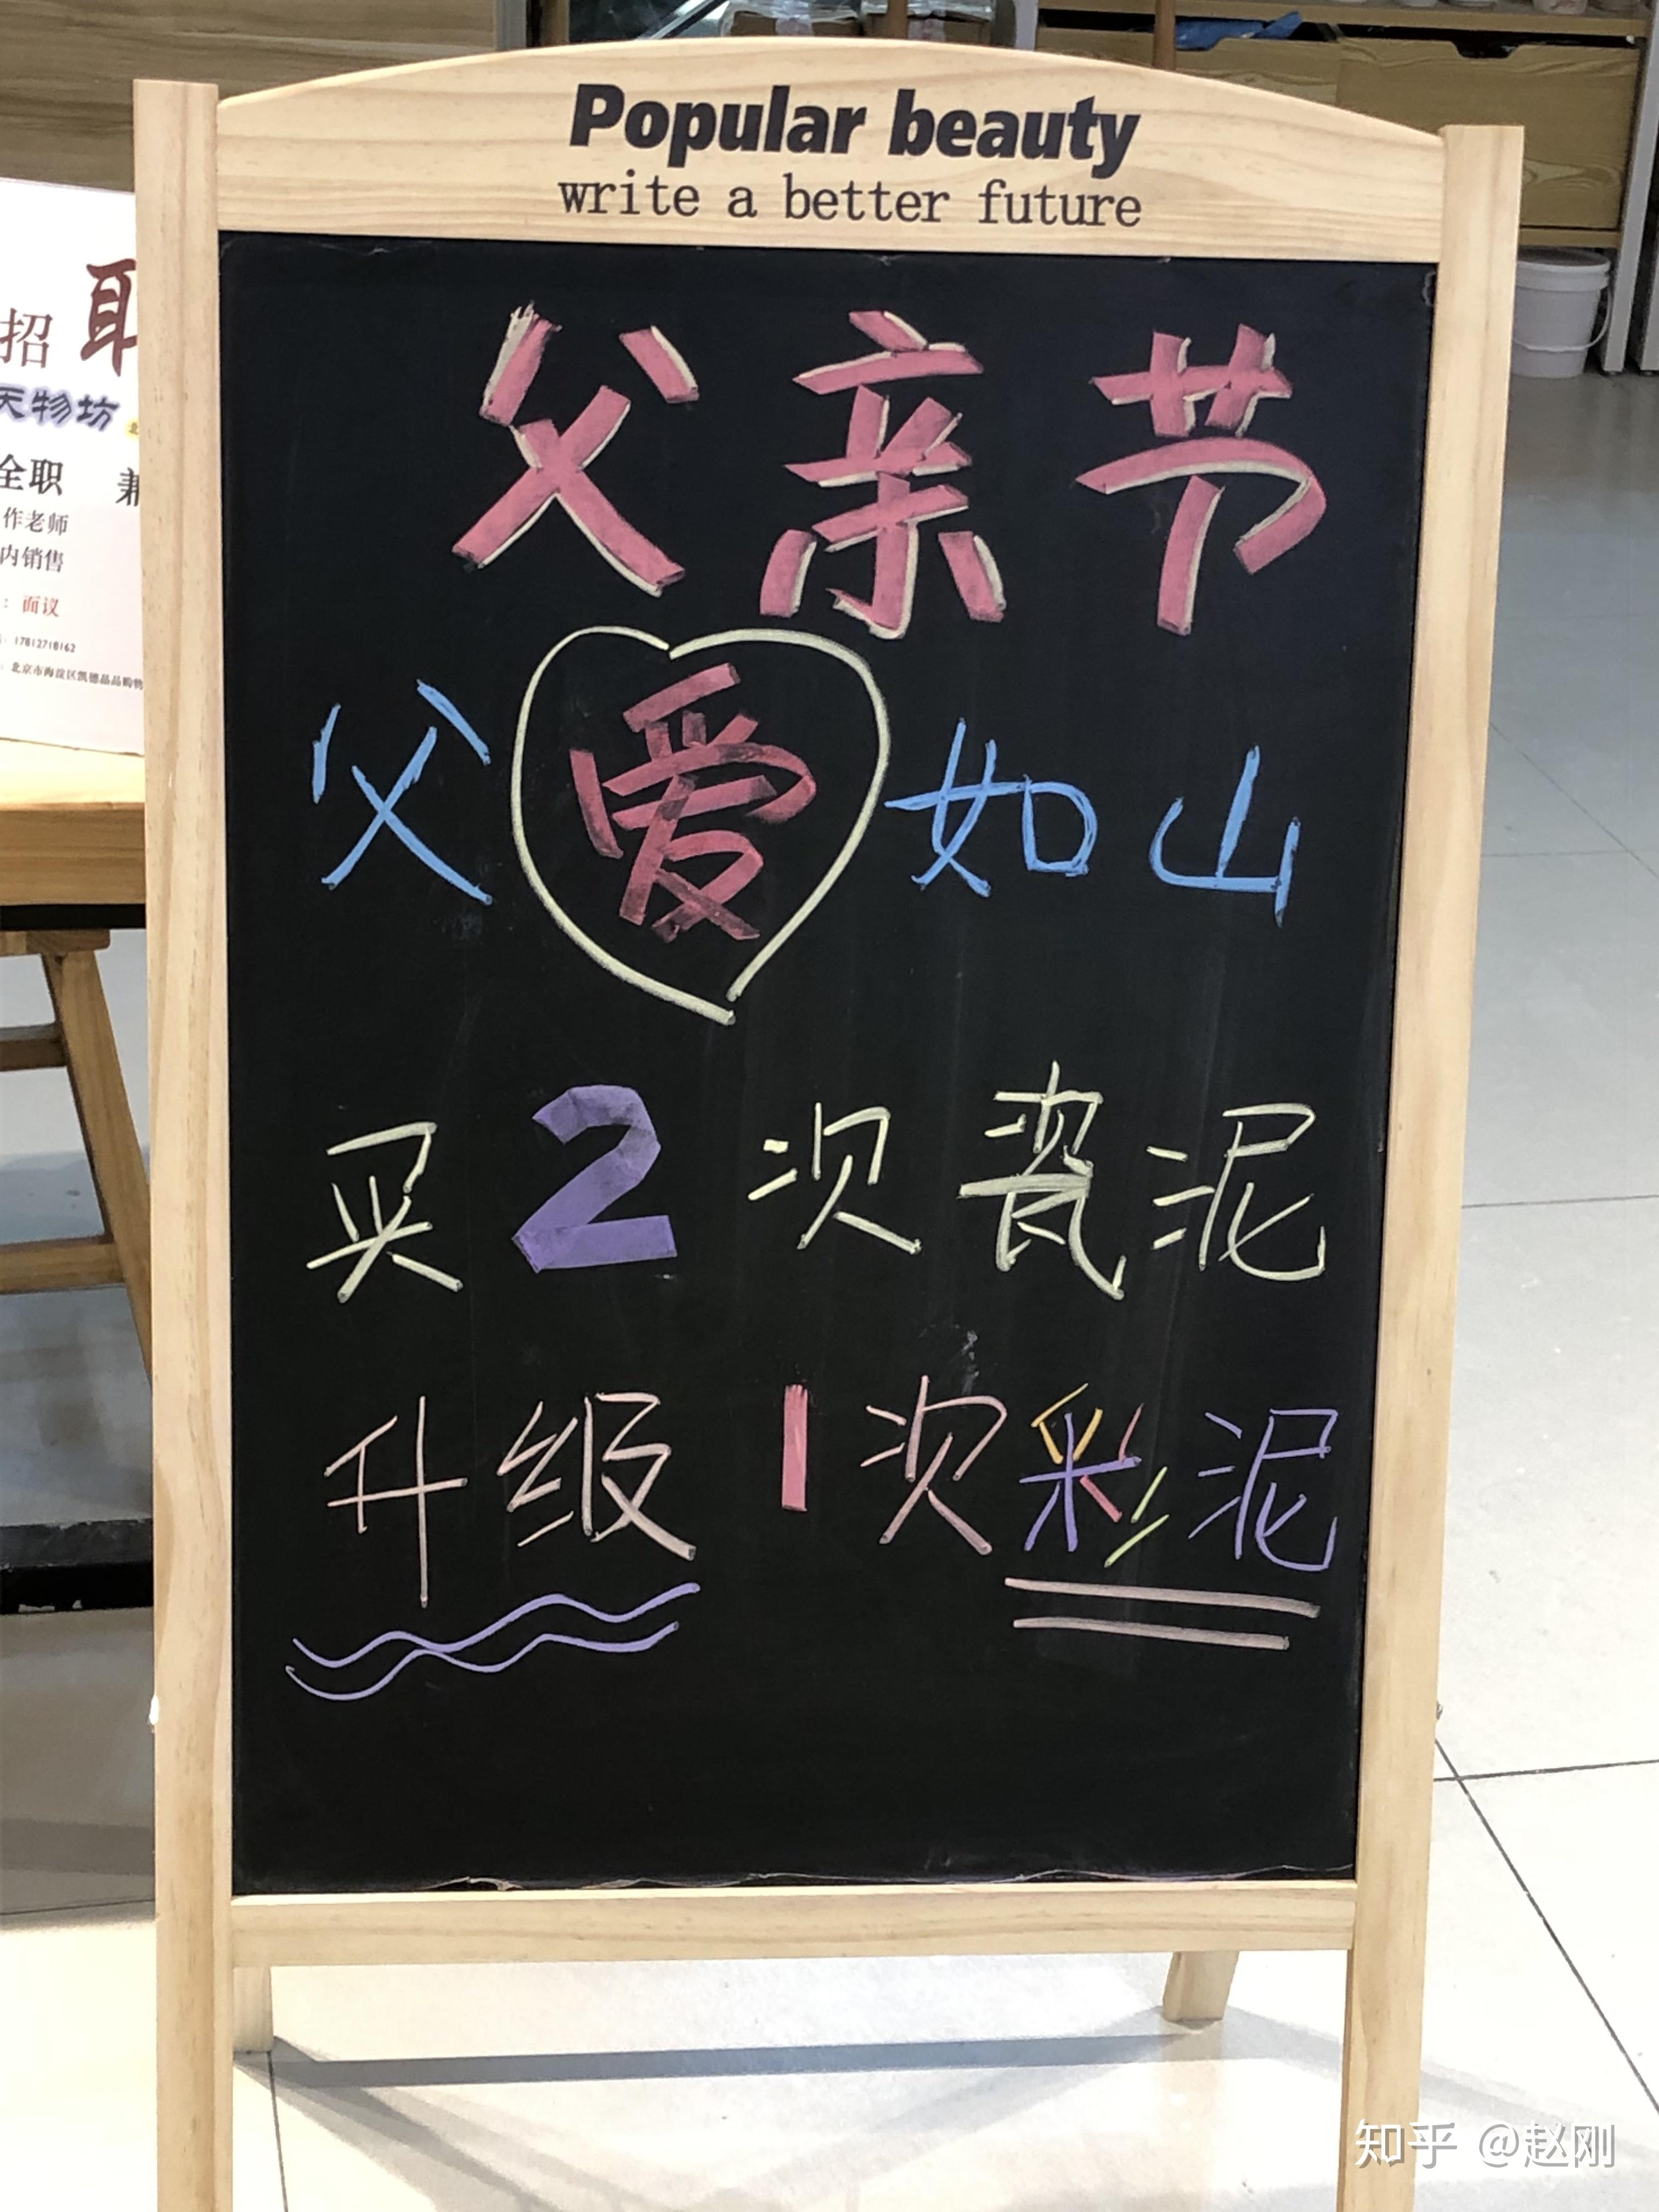 Popular beauty
write a better future
父亲节
父爱如山
买2次瓷泥
升级1次彩泥
招
天物坊
全职 兼
作老师
内销售
：面议
17812718162
北京市海淀区凯德晶品购物
知乎 @赵刚